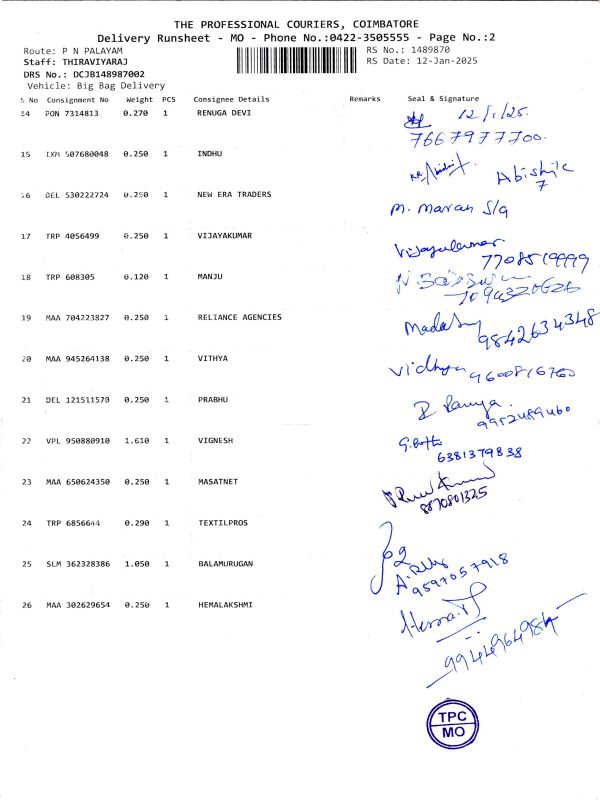 THE PROFESSIONAL COURIERS, COIMBATORE
Delivery Runsheet - MO - Phone No.:0422-3505555 - Page No.:2
Route: P N PALAYAM RS No.: 1489870
Staff: THIRAVIYARAJ RS Date: 12-Jan-2025
DRS No.: DCJB148987002
Vehicle: Big Bag Delivery
S No Consignment No Weight PCS Consignee Details Remarks Seal & Signature
14 PON 7314813 0.270 1 RENUGA DEVI 12/1/25.
7667977700.
15 IXM 507680048 0.250 1 INDHU
Abishik
16 DEL 530222724 0.250 1 NEW ERA TRADERS
M. Maran S/g
17 TRP 4056499 0.250 1 VIJAYAKUMAR Vijayakumar
7708519999
18 TRP 608305 0.120 1 MANJU
19 MAA 704223827 0.250 1 RELIANCE AGENCIES
9842634348
20 MAA 945264138 0.250 1 VITHYA Vidhya
21 DEL 121511570 0.250 1 PRABHU R Ramya.
9952489460
22 VPL 950880910 1.610 1 VIGNESH
6381379838
23 MAA 650624350 0.250 1 MASATNET
8870801325
24 TRP 6856644 0.290 1 TEXTILPROS
25 SLM 362328386 1.050 1 BALAMURUGAN
9597057918
26 MAA 302629654 0.250 1 HEMALAKSHMI
9944964984
TPC
MO